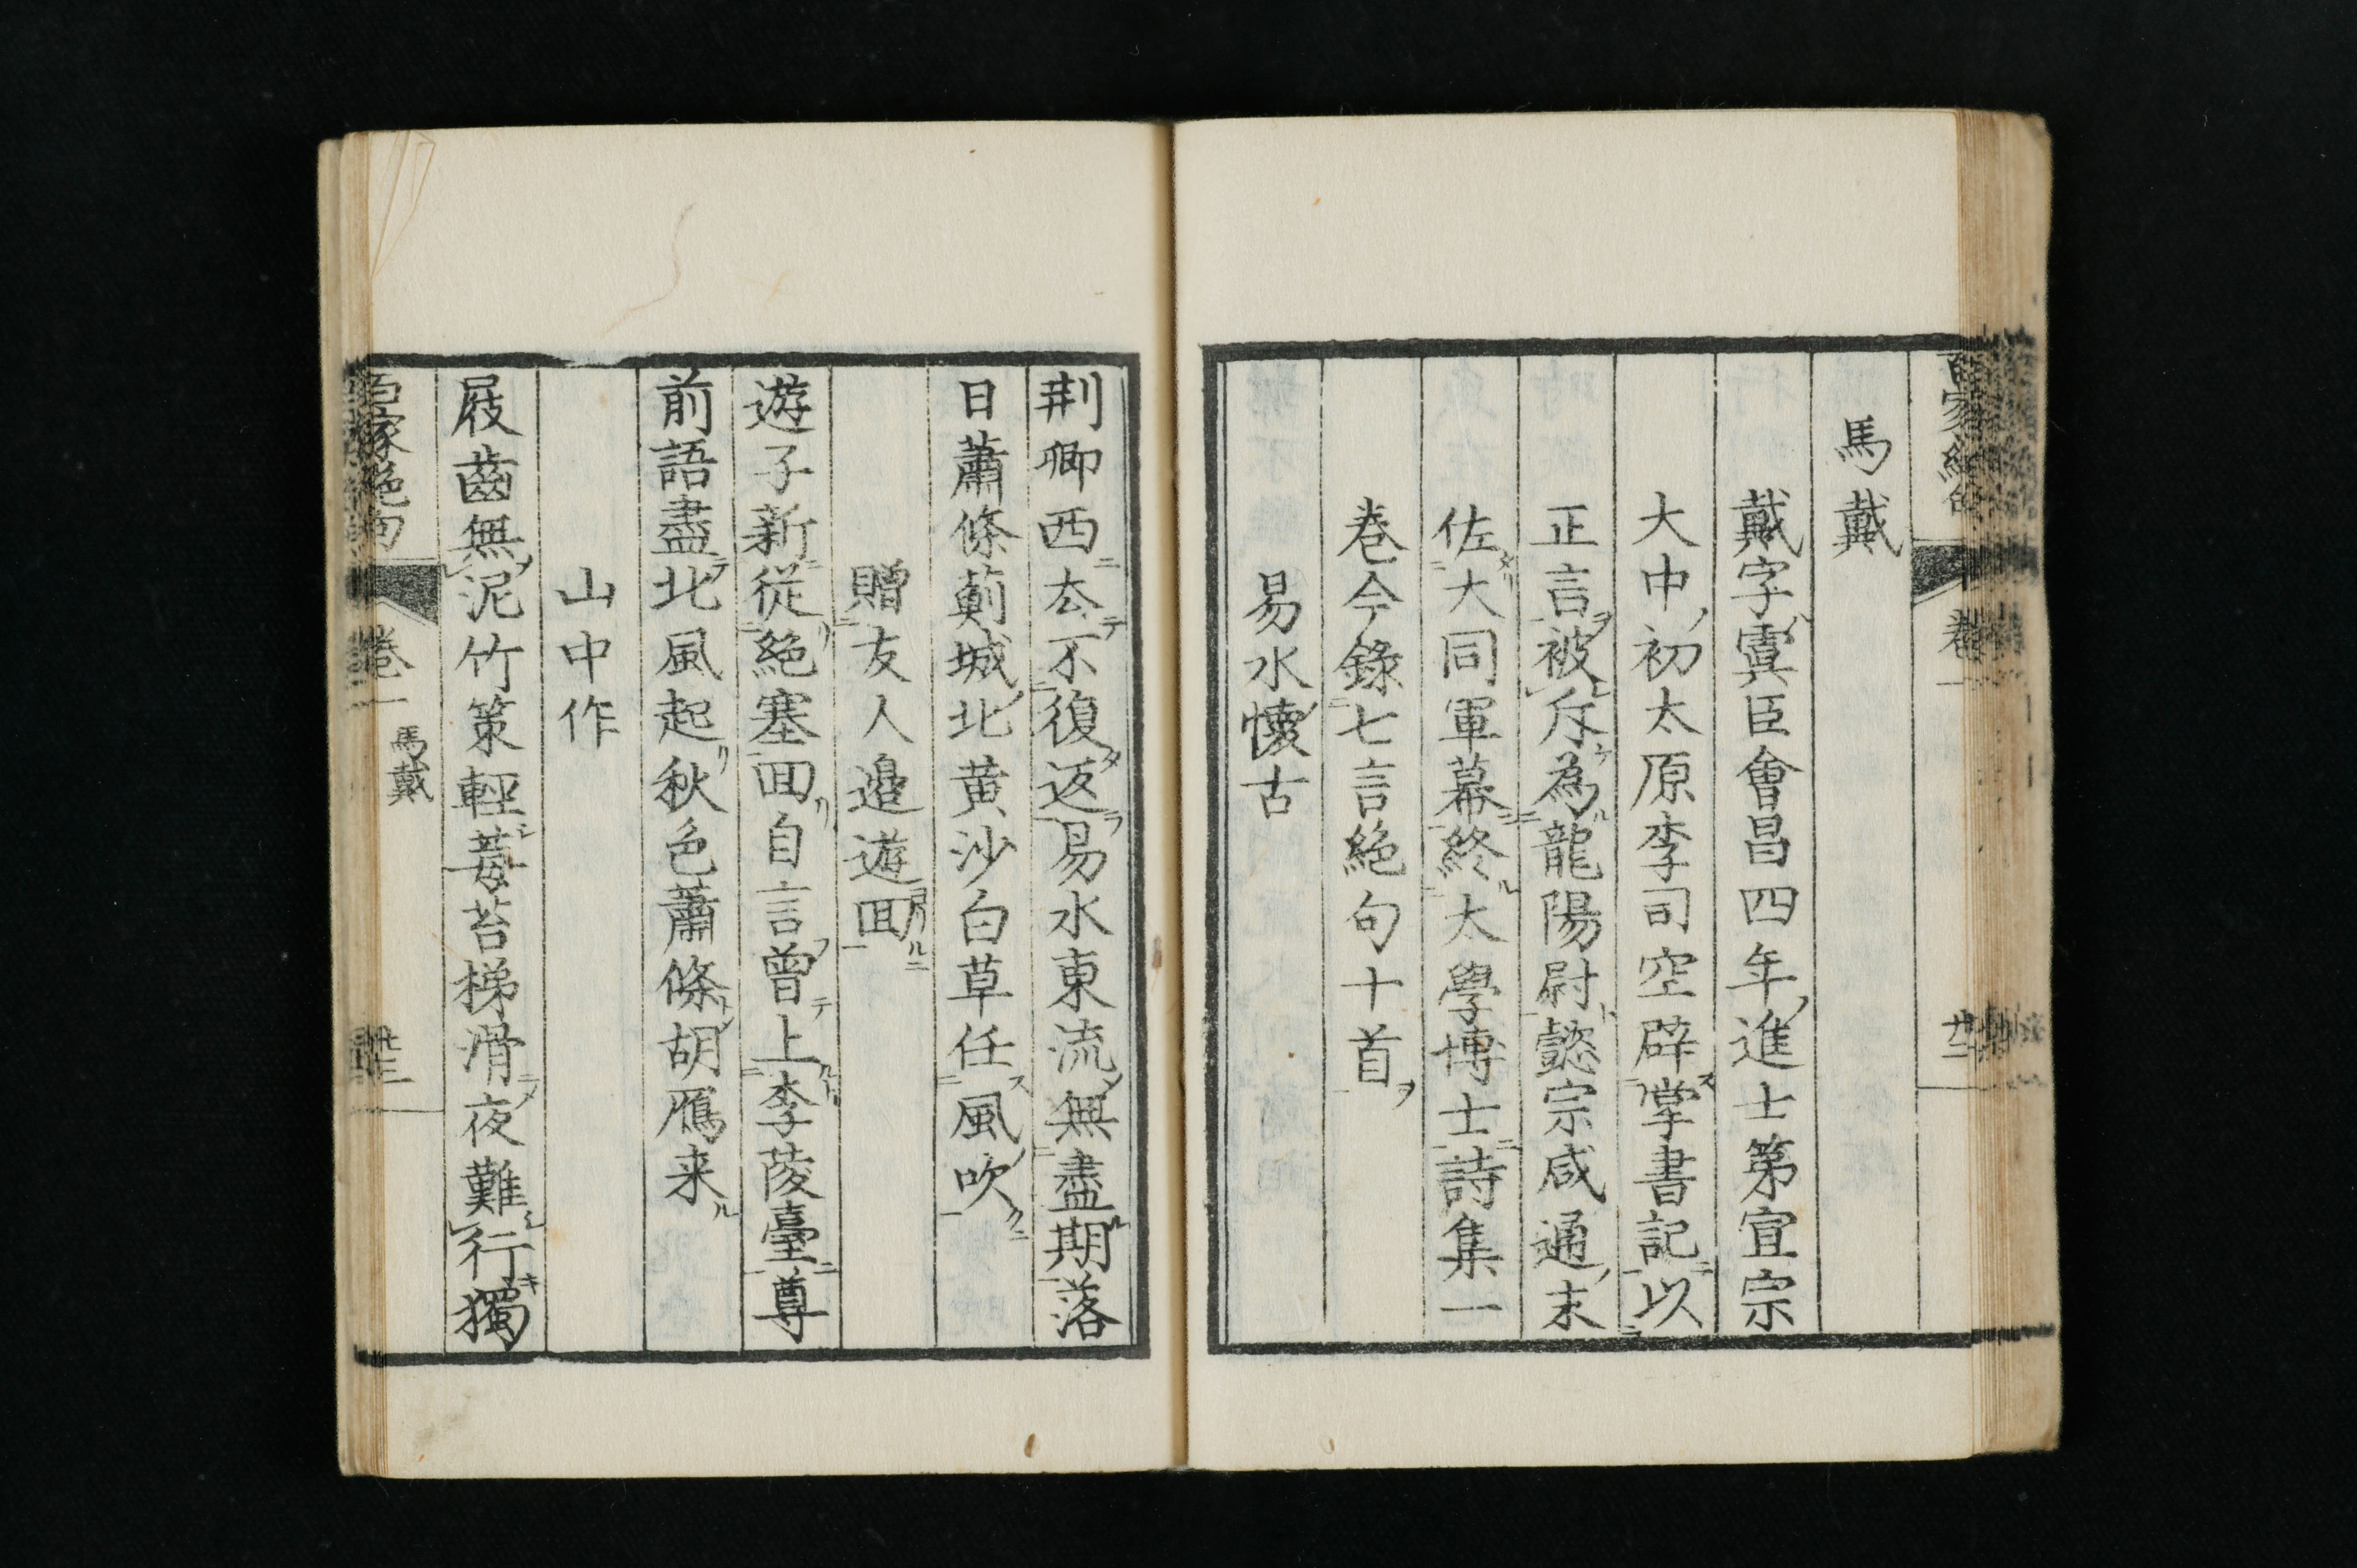 馬戴
戴字虞臣會昌四年進士第宣宗
大中初太原李司空辟掌書記以
正言被斥為龍陽尉懿宗咸通末
佐大同軍幕終太學博士詩集一
巻今錄七言絕句十首
易水懐古
荆卿西去不復返易水東流無盡期落
日蕭條薊城北黄沙白草任風吹
贈友人邉遊囬
遊子新従絕塞囬自言曾上李陵臺尊
前語盡北風起秋色蕭條胡鴈来
山中作
屐齒無泥竹策輕莓苔梯滑夜難行獨
百家絶句
巻一
馬戴